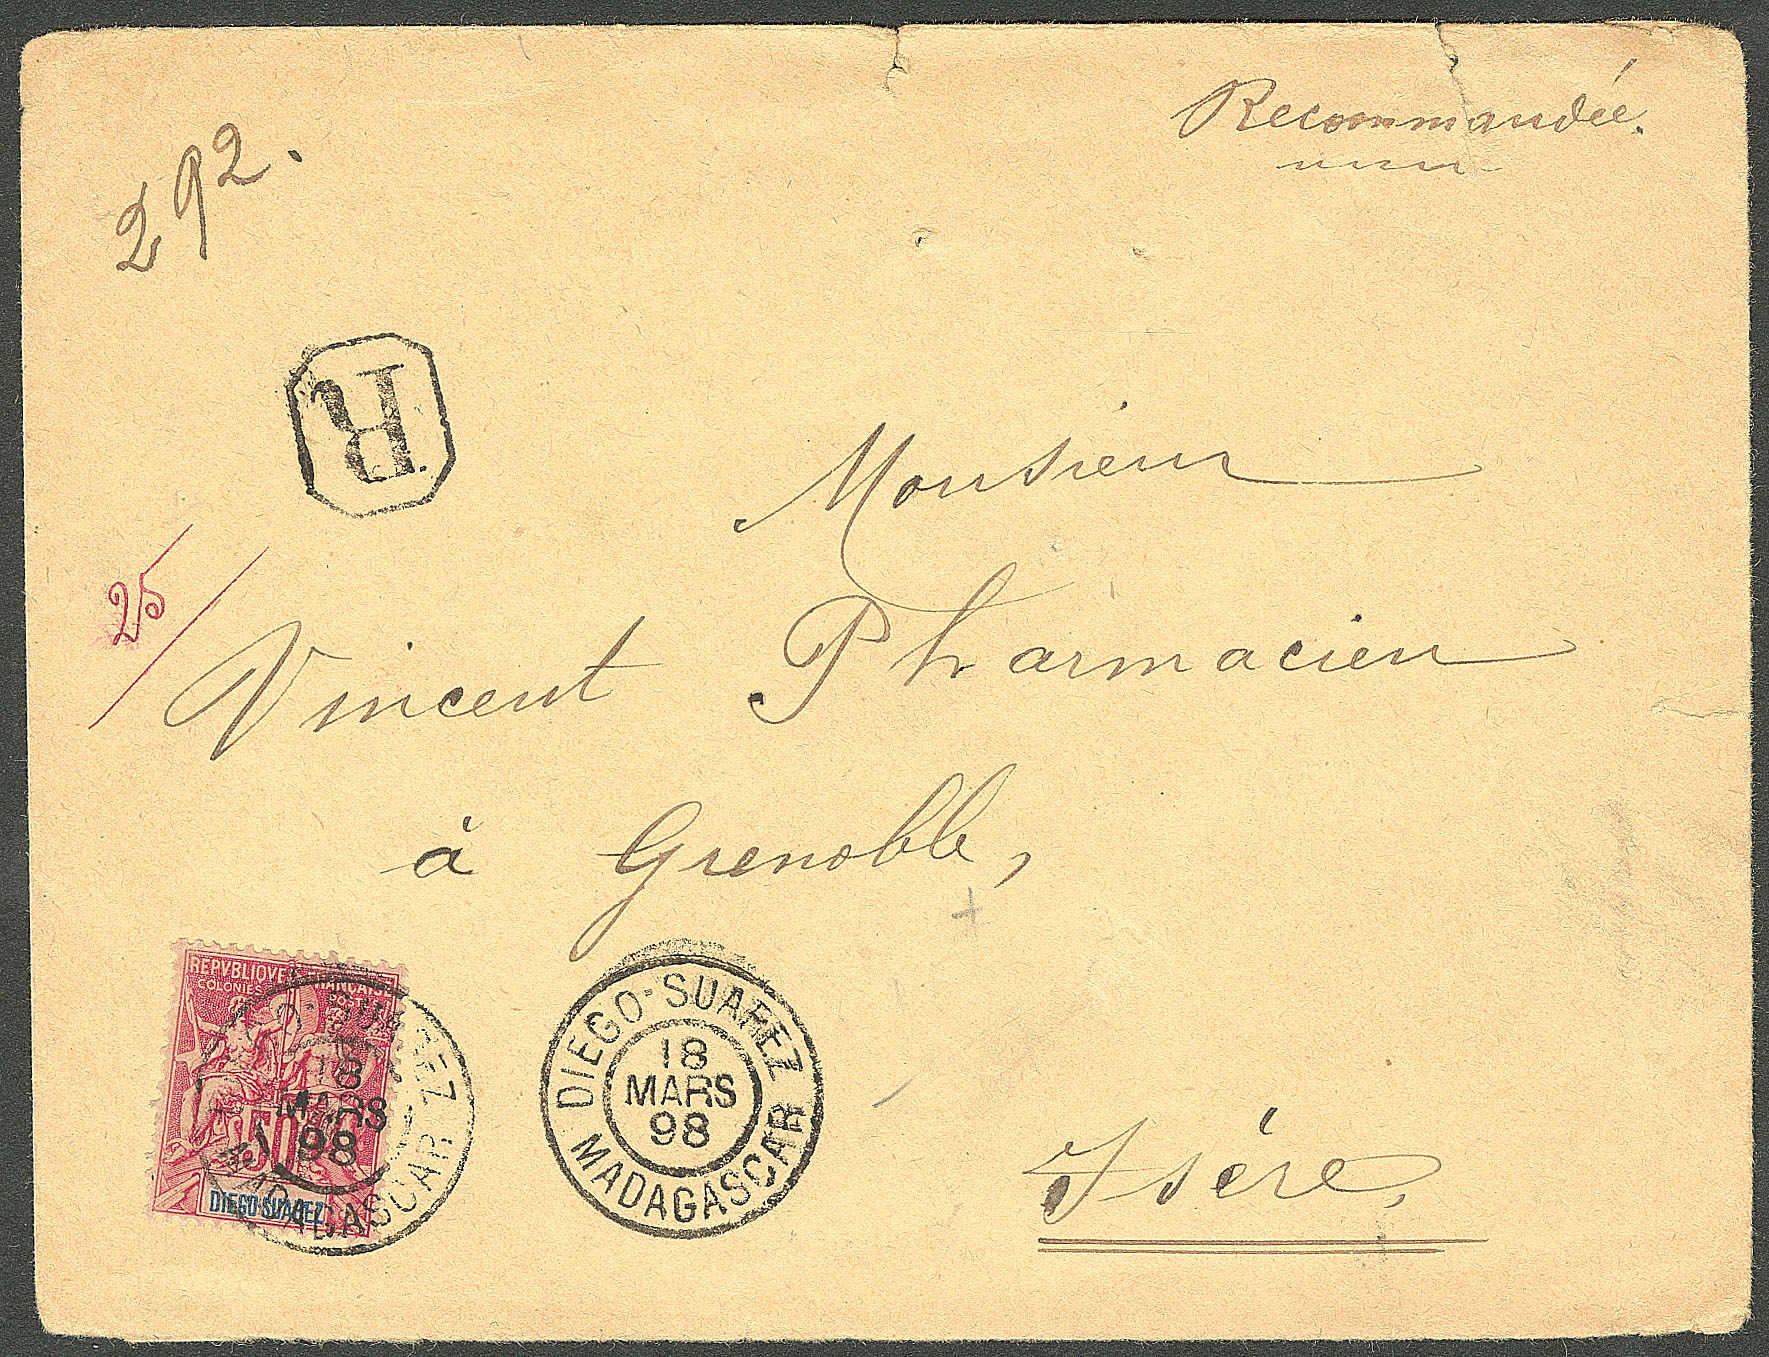 Recommandée.
292.
R
25
Monsieur
Vincent Pharmacien
à Grenoble,
Isére,
REPVBLIQVE FRANÇAISE
COLONIES POSTES
50
DIEGO-SUAREZ
DIEGO-SUAREZ
18
MARS
98
MADAGASCAR
DIEGO-SUAREZ
18
MARS
98
MADAGASCAR